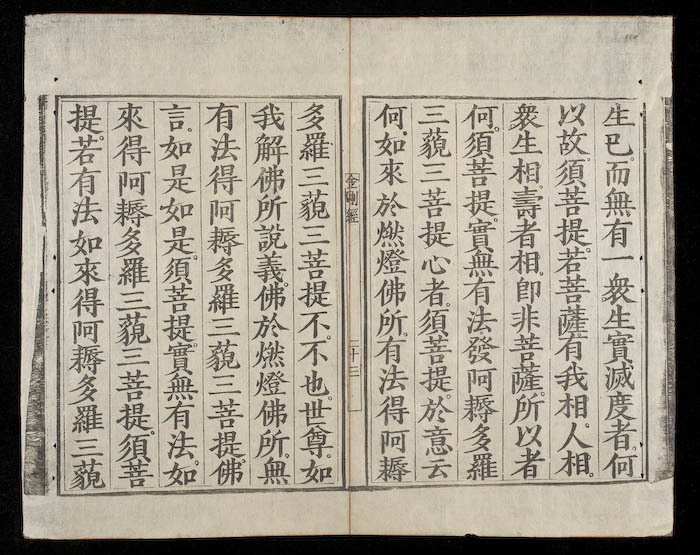 生已。而無有一衆生實滅度者。何
以故。須菩提。若菩薩有我相。人相。
衆生相。壽者相。卽非菩薩。所以者
何。須菩提。實無有法發阿耨多羅
三藐三菩提心者。須菩提。於意云
何。如來於燃燈佛所。有法得阿耨
金剛經
二十三
多羅三藐三菩提不。不也。世尊。如
我解佛所說義。佛於燃燈佛所。無
有法得阿耨多羅三藐三菩提。佛
言。如是如是。須菩提。實無有法。如
來得阿耨多羅三藐三菩提。須菩
提。若有法如來得阿耨多羅三藐